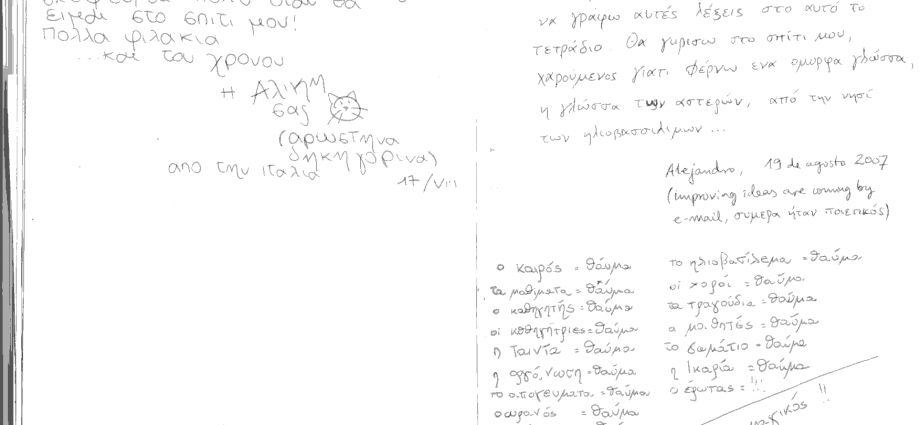 ειμαι στο σπιτι μου!
Πολλα φιλακια
...και του χρονου
Η Αλικη
σας
(αρωστηνα
δηκηγορινα)
απο την ιταλια
17/VIII
να γράψω αυτές λέξεις στο αυτό το
τετράδιο. Θα γυρισω στο σπίτι μου,
χαρούμενος γιατι φέρνω ενα ομορφα γλώσσα,
η γλώσσα των αστερών, από την νησί
των ηλιοβασιλιμων ...
Alejandro, 19 de agosto 2007
(improving ideas are coming by
e-mail, συμερα ήταν ποιετικός)
ο καιρός = θάυμα
τα μαθιματα = θαύμα
ο καθηγητής = θαύμα
οι καθηγήτριες = θαύμα
η Ταινία = θαύμα
η οργάνωση = θαύμα
το απογευματα = θαύμα
ο ουρανός = θαύμα
το ηλιοβατίλεμα = θαύμα
οι χοροι = θαύμα
τα τραγούδια = θαύμα
α μαθητές = θαύμα
το σωμάτιο = θαύμα
η Ικαρία = θαύμα
ο έρωτας = !!!
!!